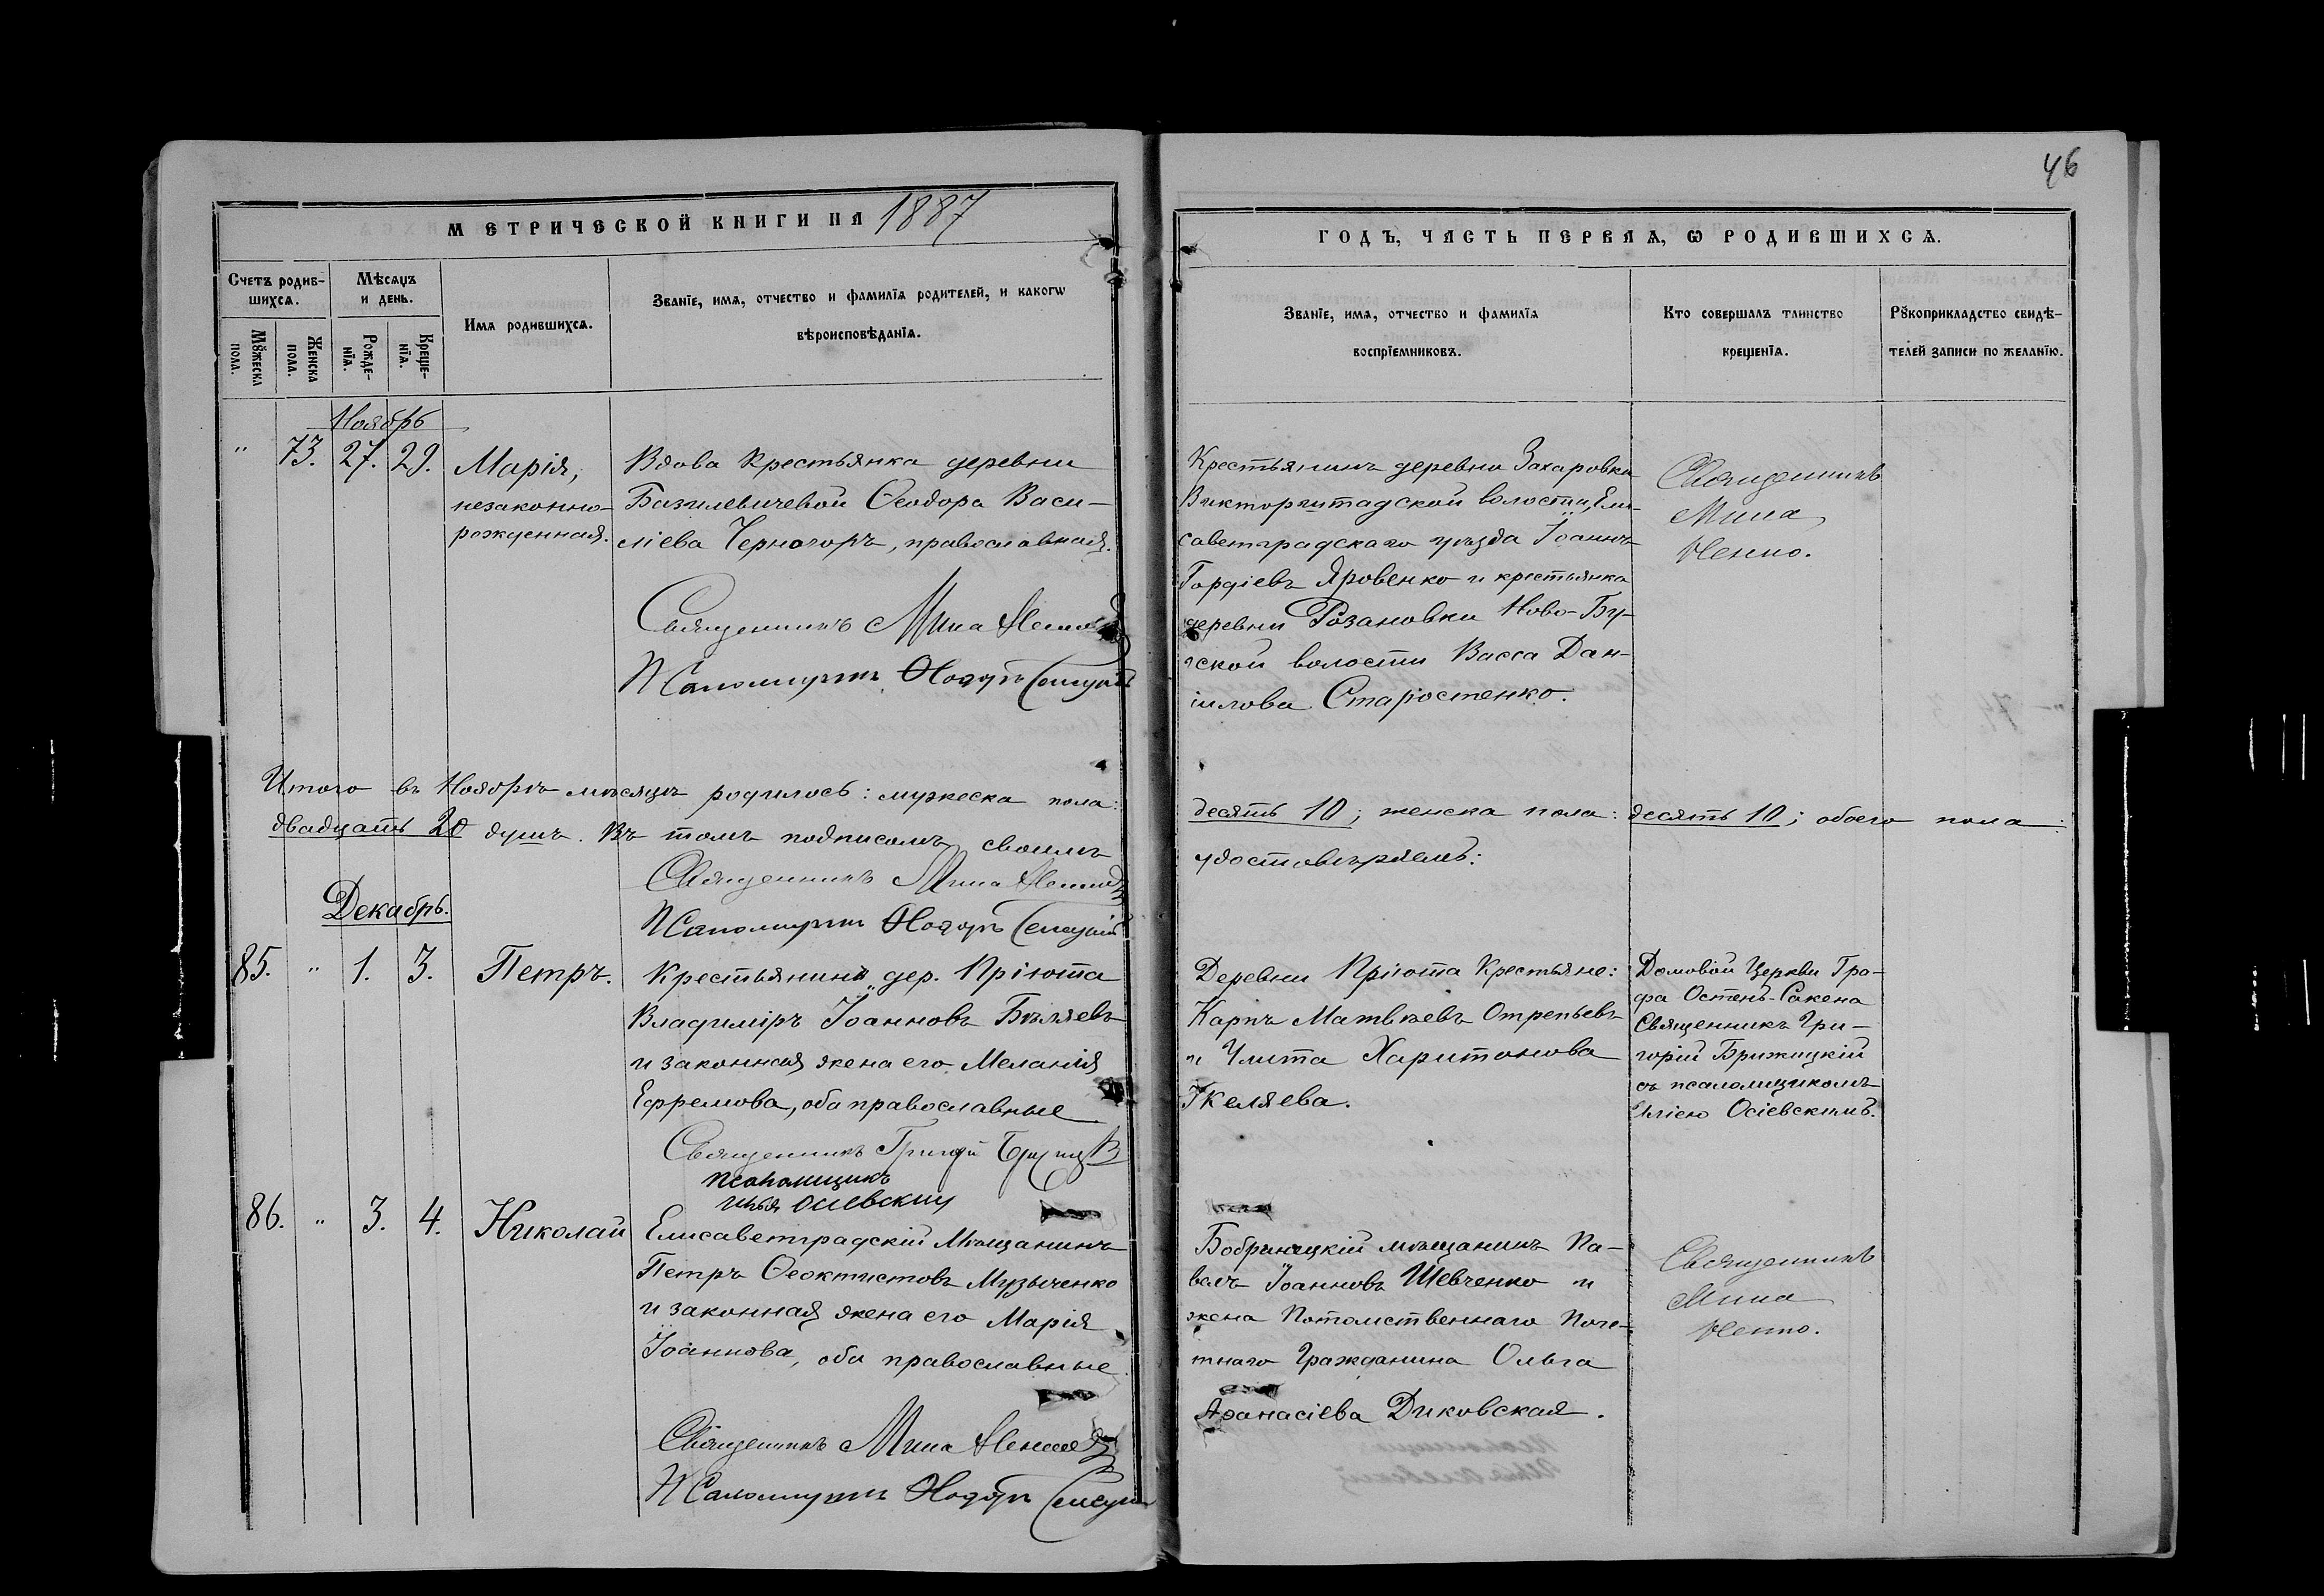 46
МЕТРИЧЕСКОЙ КНИГИ НА 1887
ГОДЪ, ЧАСТЬ ПЕРВАЯ, Ѡ РОДИВШИХСѦ.
Счетъ родив-
шихсѧ.
Мѣсяцъ
и день.
Имѧ родившихсѧ.
Званїе, имѧ, отчество и фамилїѧ родителей, и какогѡ
вѣроисповѣданїѧ.
Мꙋжеска
пола.
Женска
пола.
Рожде-
нїѧ.
Креще-
нїѧ.
Званїе, имѧ, отчество и фамилїѧ
воспрїемниковъ.
Кто совершалъ таинство
крещенїѧ.
Рꙋкоприкладство свидѣ-
телей записи по желанїю.
Ноябрь
" 73. 27. 29.
Марія,
незаконно-
рожденная.
Вдова крестьянка деревни
Базилевичевой Ѳеодора Васи-
ліева Черногоръ, православная.
Священникъ Мина
Псаломщикъ
Крестьянинъ деревни Захаровки
Викторштадской волости, Ели-
саветградскаго уѣзда Іоаннъ
Гордіевъ Яровенко и крестьянка
деревни Розановки Ново-Бу-
гской волости Васса Дан-
іилова Старостенко.
Священникъ
Мина
Итого въ Ноябрѣ мѣсяцѣ родилось: мужеска пола:
десять 10; женска пола: десять 10; обоего пола:
двадцать 20 душъ. Въ томъ подписомъ своимъ
удостовѣряемъ:
Священникъ Мина
Псаломщикъ
Декабрь.
85. " 1. 3.
Петръ.
Крестьянинъ дер. Пріюта
Владиміръ Іоанновъ Бѣляевъ
и законная жена его Меланія
Ефремова, оба православные
Священникъ Григорій
псаломщикъ
Илья Осіевскій
Деревни Пріюта Крестьяне:
Карпъ Матвѣевъ Отрепьевъ
и Улита Харитонова
Домовой Церкви Гра-
фа Остенъ-Сакена
Священникъ Гри-
горій Брижицкій
съ псаломщикомъ
Иліею Осіевскимъ.
86. " 3. 4.
Николай
Елисаветградскій Мѣщанинъ
Петръ Ѳеоктистовъ Музыченко
и законная жена его Марія
Іоаннова, оба православные
Священникъ Мина
Псаломщикъ
Бобринецкій мѣщанинъ Па-
велъ Іоанновъ Шевченко и
жена Потомственнаго Поче-
тнаго Гражданина Ольга
Аѳанасіева Диковская.
Священникъ
Мина